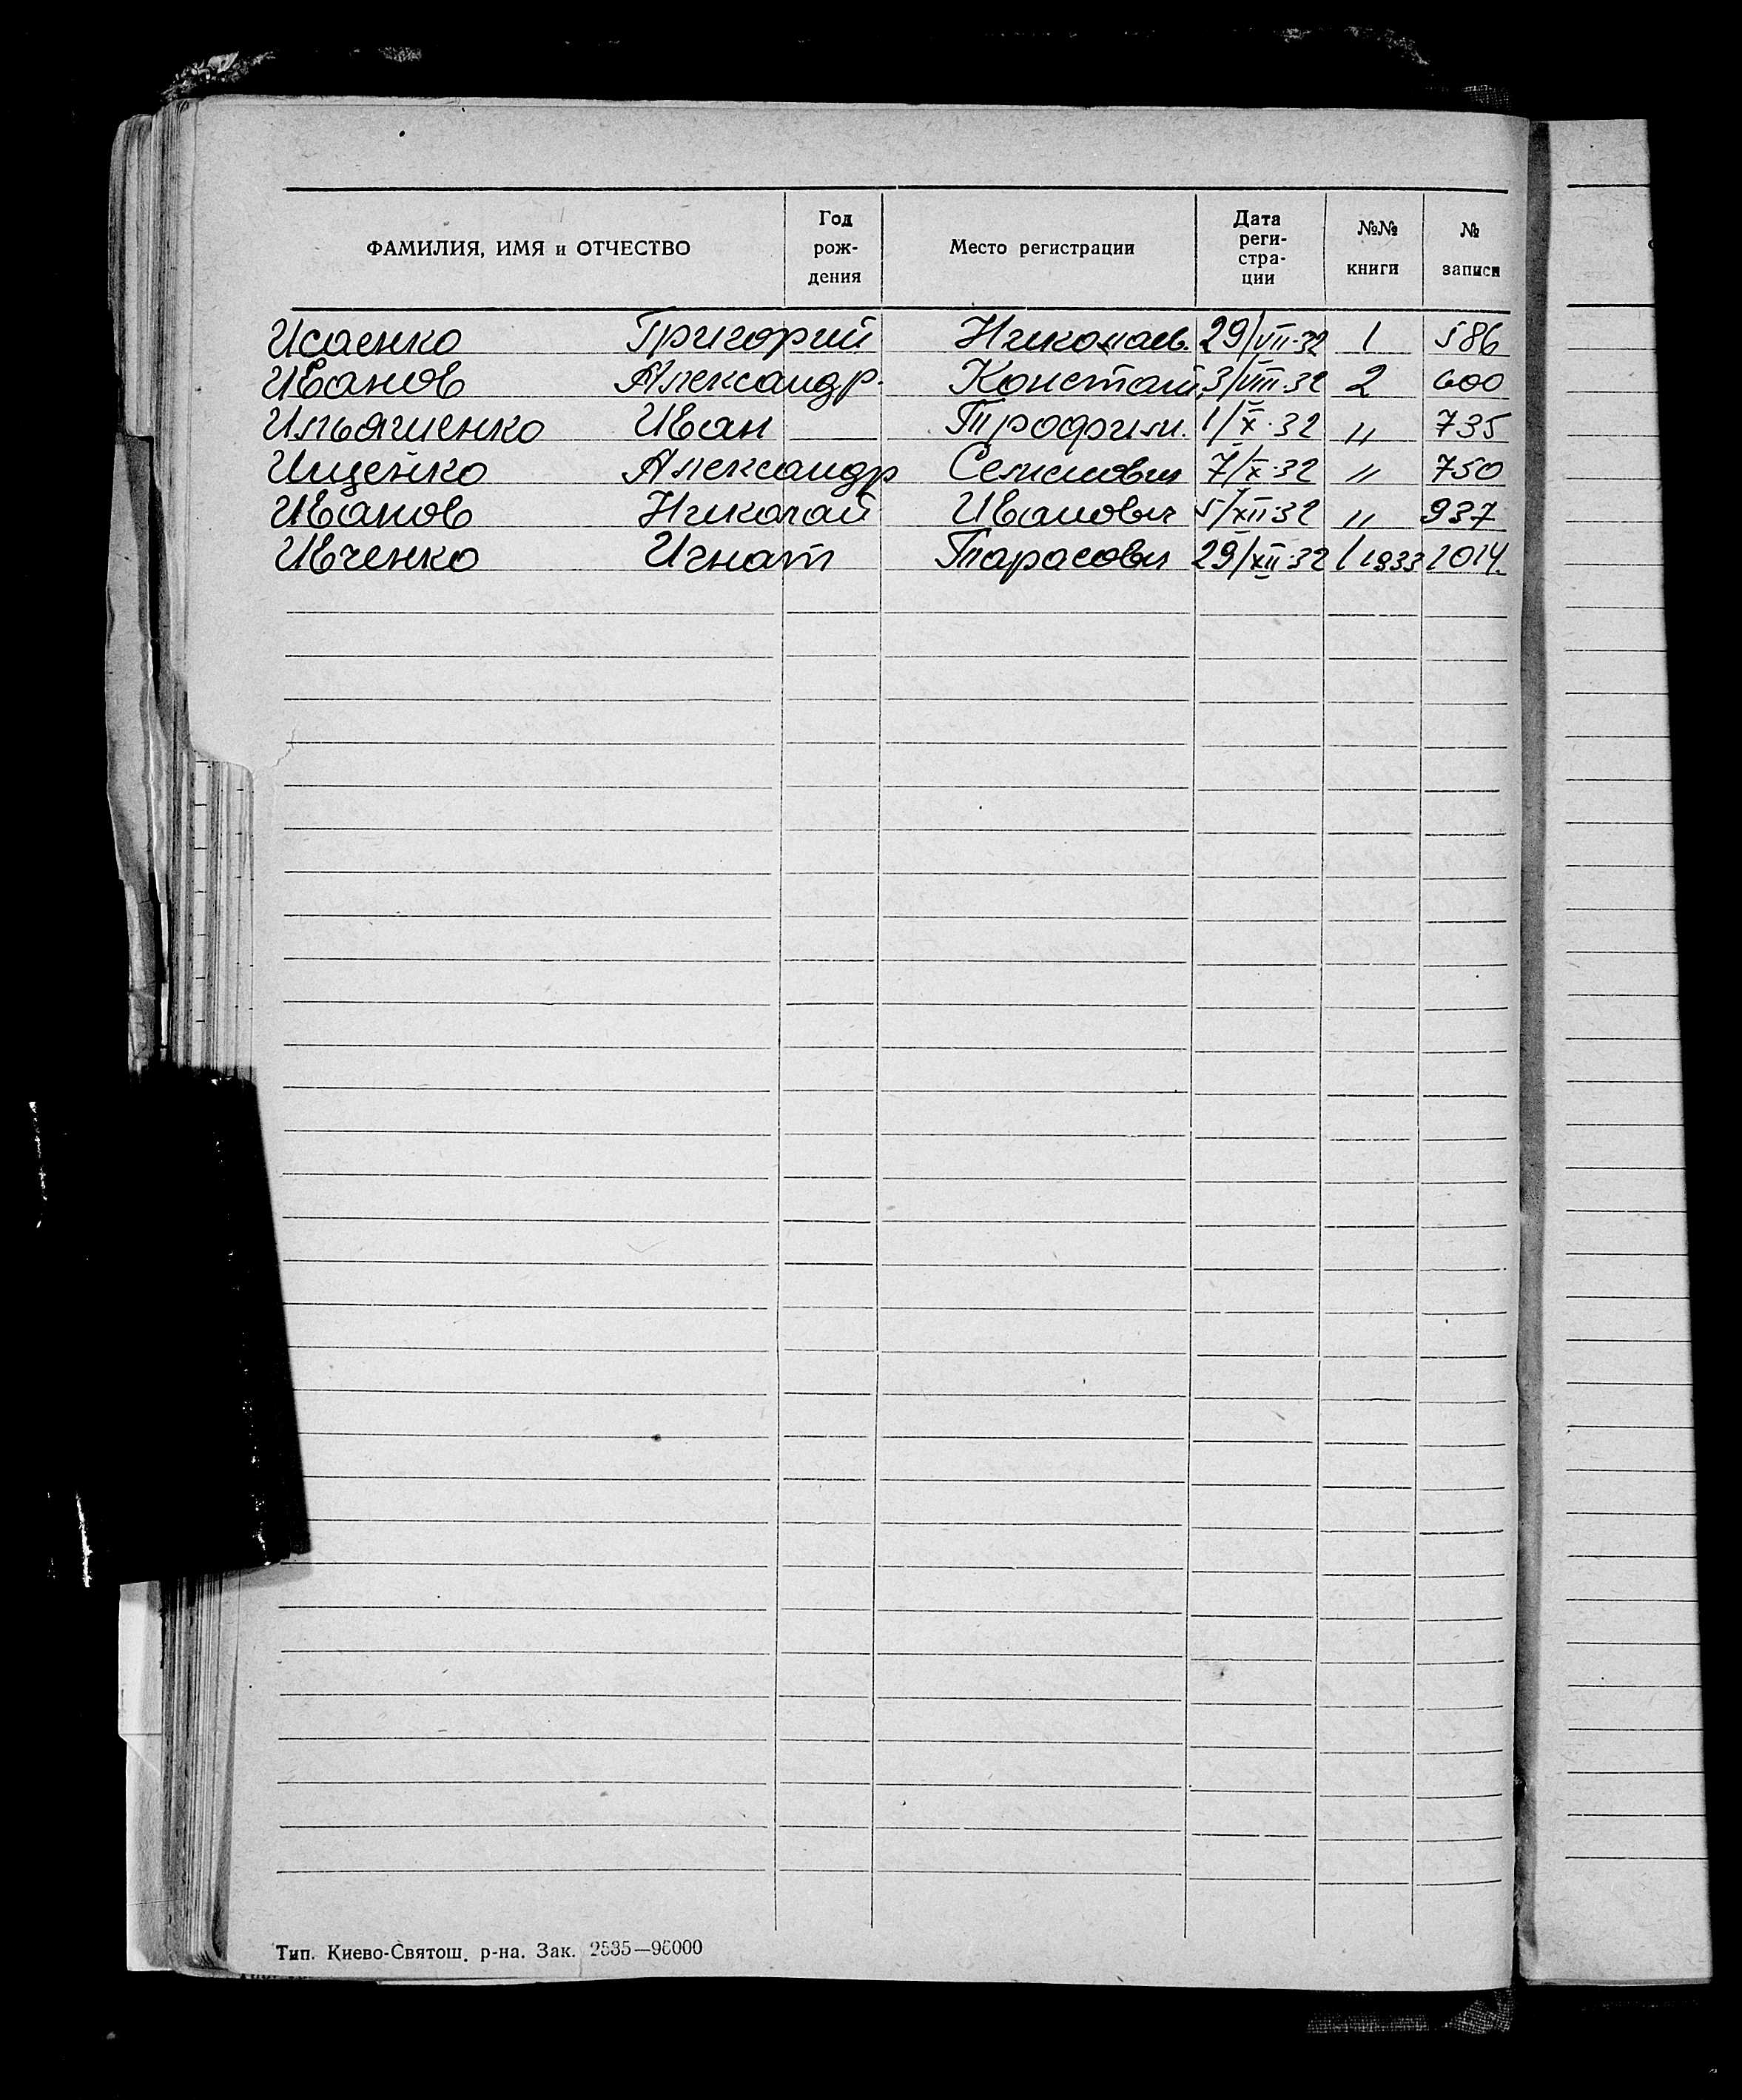 ФАМИЛИЯ, ИМЯ и ОТЧЕСТВО Год рож- дения Место регистрации Дата реги- стра- ции №№ книги № записи
Исаенко Григорий Николаев. 29/VII-32 1 586
Иванов Александр. Констант. 3/VIII-32 2 600
Ильяшенко Иван Трофим. 1/X-32 〃 735
Ищенко Александр Семенович 7/X-32 〃 750
Иванов Николай Иванович 5/XII-32 〃 937
Ивченко Игнат Тарасович 29/XII-32 1 1933 1014.
Тип. Киево-Святош. р-на. Зак. 2535—96000